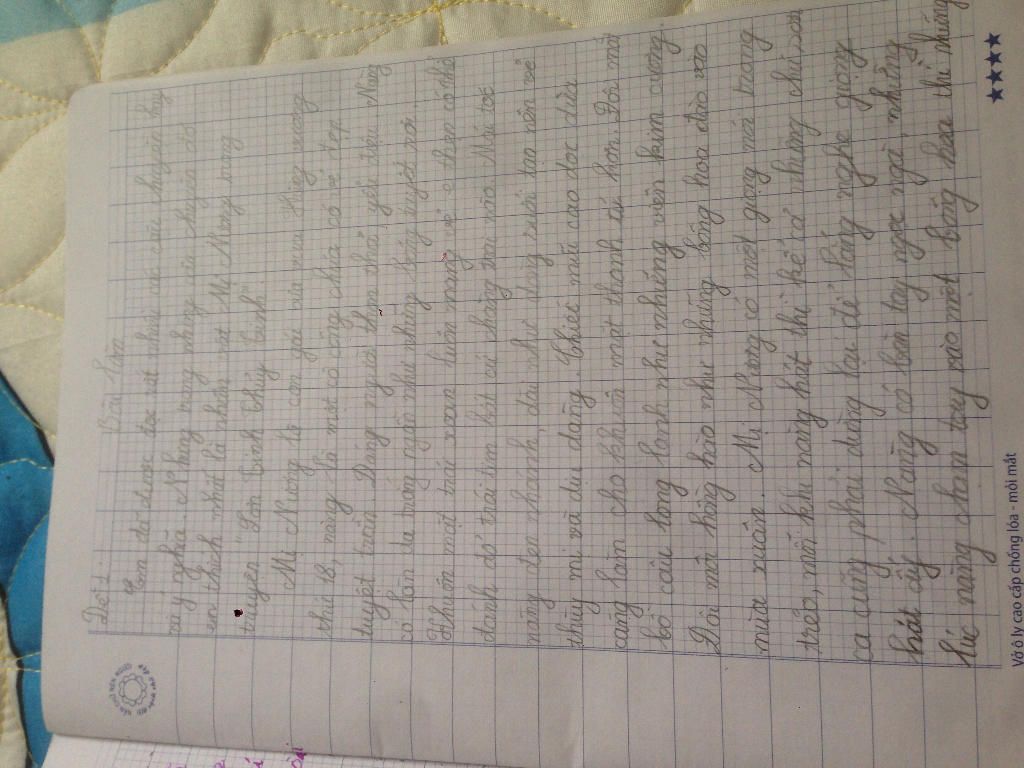 Đề 1: Bài làm
Em đã được đọc rất nhiều các câu chuyện hay
và ý nghĩa. Nhưng trong những câu chuyện đó
em thích nhất là nhân vật Mị Nương trong
truyện "Sơn Tinh Thủy Tinh".
Mị Nương là con gái của vua Hùng Vương
thứ 18, nàng là một cô công chúa có vẻ đẹp
tuyệt trần. Dáng người thon thả, yểu điệu. Nàng
có làn da trắng ngần như những bông tuyết rơi.
Khuôn mặt trái xoan luôn mang vẻ e thẹn có thể
đánh đổ trái tim bất cứ chàng trai nào. Mái tóc
nàng đen nhánh, dài như dòng suối tạo nên vẻ
thùy mị và dịu dàng. Chiếc mũi cao dọc dừa
càng làm cho khuôn mặt thanh tú hơn. Đôi mắt
bồ câu long lanh như những viên kim cương
Đôi môi hồng hào như những bông hoa đào vào
mùa xuân. Mị Nương có một giọng nói trong
trẻo, mỗi khi nàng hát thì kể cả những chú sơn
ca cũng phải dừng lại để lắng nghe giọng
hát ấy. Nàng có bàn tay ngọc ngà, những
lúc nàng chạm tay vào một bông hoa thì những
Vở ô ly cao cấp chống lóa - mỏi mắt